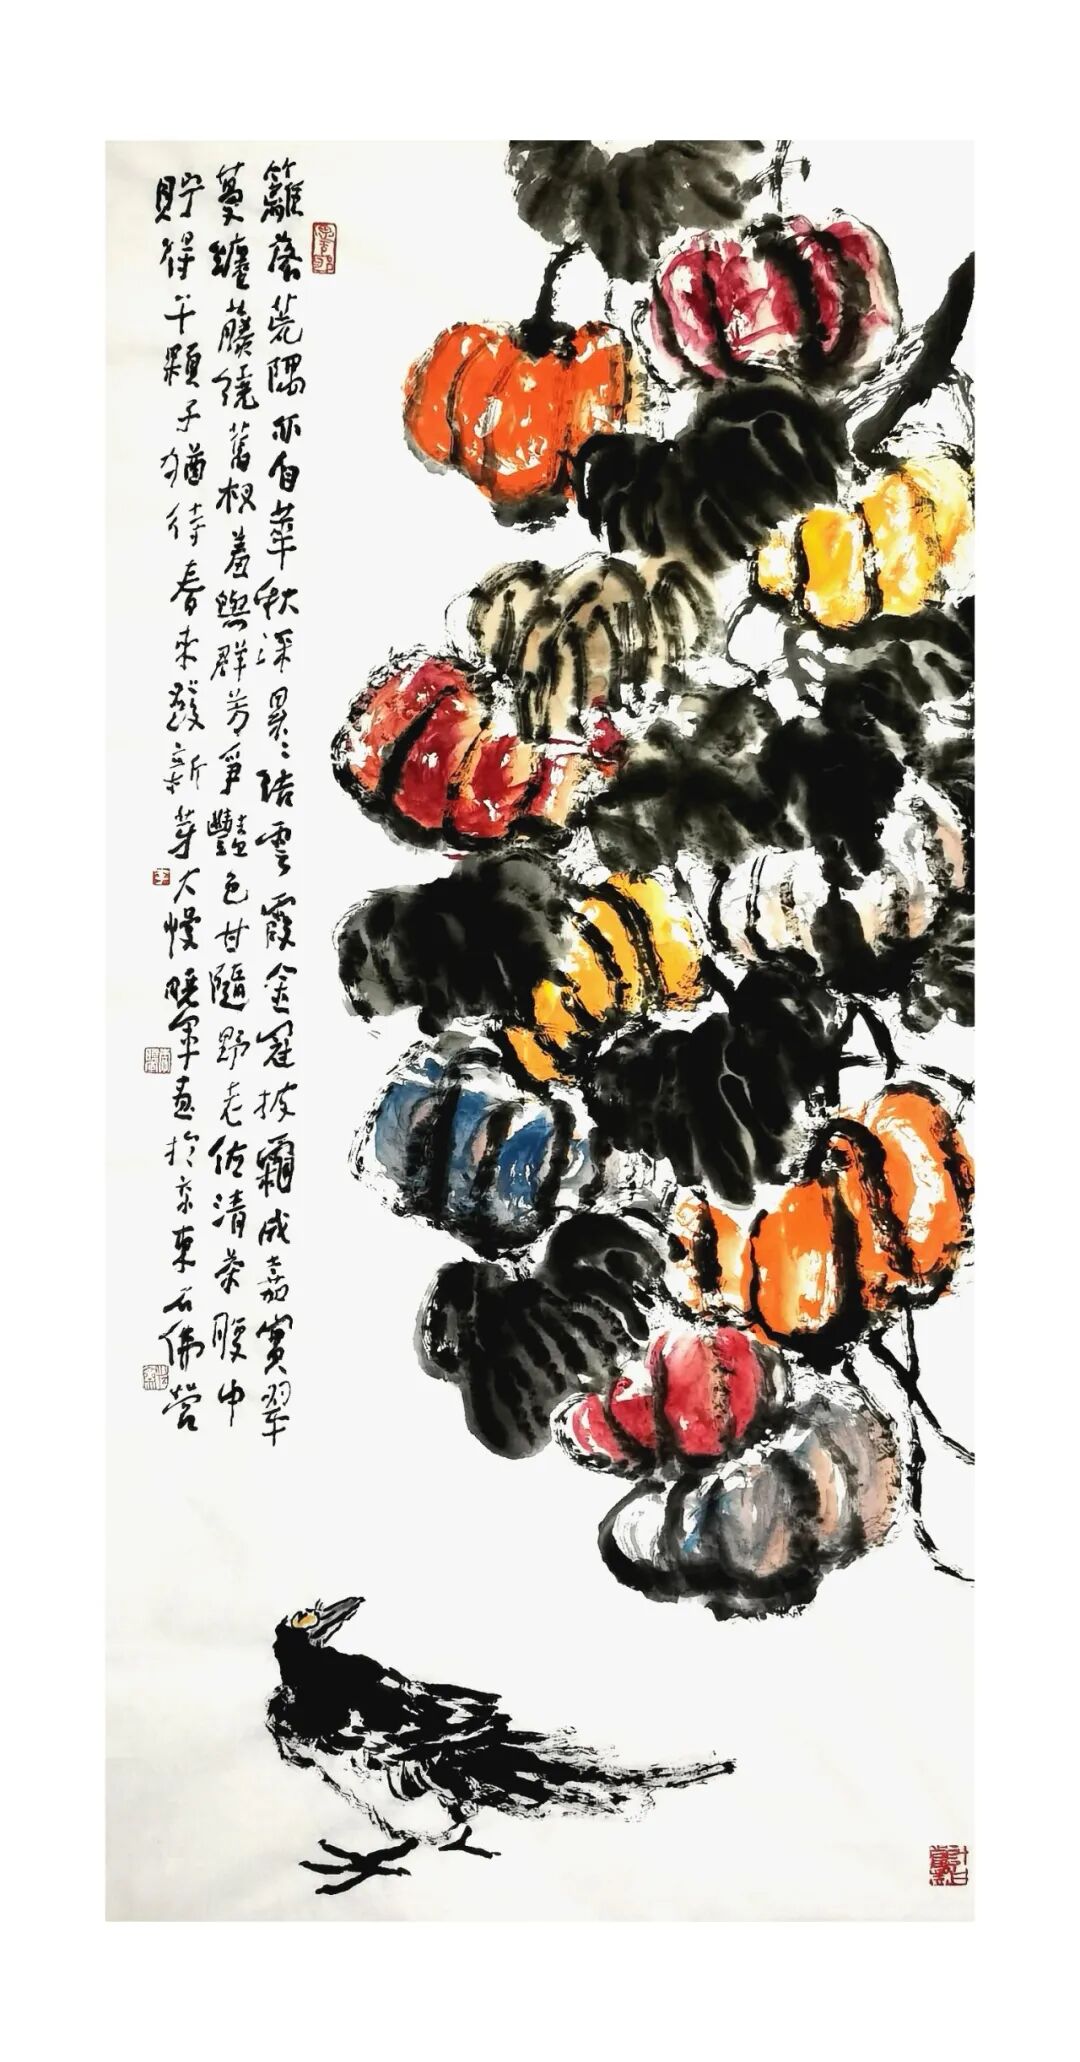 籬落荒隅亦自華秋深累〻結雲霞金冠披霜成嘉實翠
蔓纏藤繞舊杈羞與群芳爭豔色甘隨野老佐清茶腹中
貯得千顆子猶待春來發新芽大慢曉軍畫於京東石佛營
李